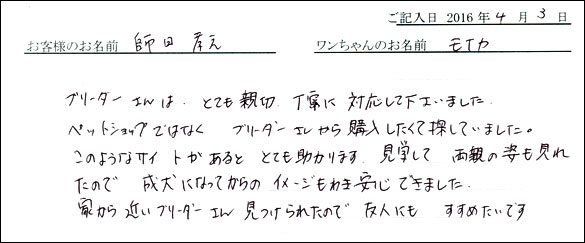 ご記入日 2016年4月3日
お客様のお名前 師田 孝之 ワンちゃんのお名前 モイカ
ブリーダーさんは、とても親切、丁寧に対応して下さいました。
ペットショップではなく ブリーダーさんから購入したくて探していました。
このようなサイトがあると とても助かります。見学して 両親の姿も見れ
たので 成犬になってからの イメージもわき安心できました。
家から近いブリーダーさん 見つけられたので 友人にも すすめたいです